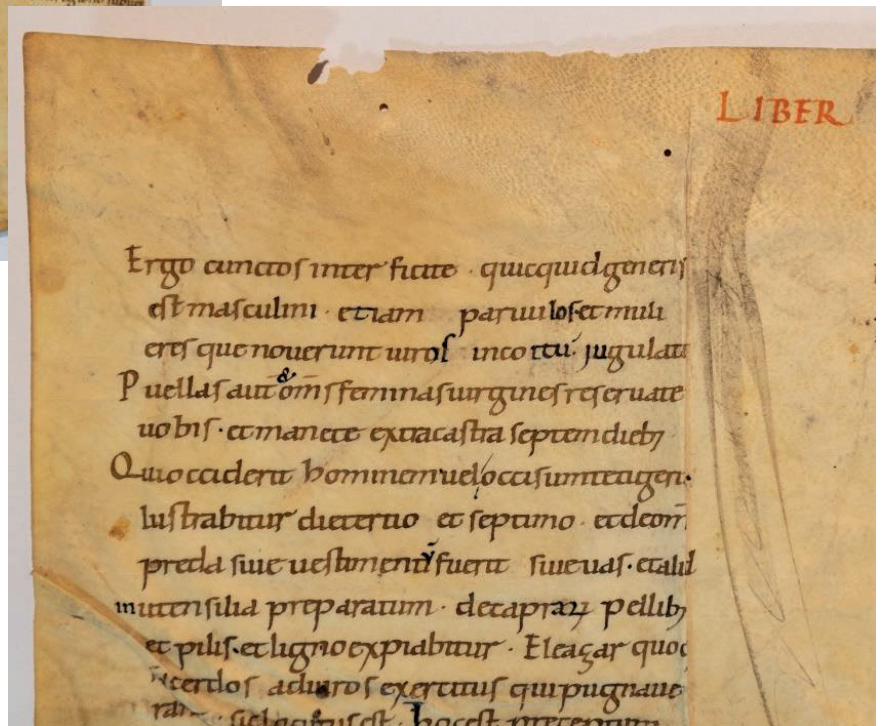 LIBER
Ergo cunctos interficite · quicquid generis
est masculini · etiam paruulos · et muli
eres que nouerunt uiros in coitu · jugulate
Puellas aut̄ & om̄s feminas uirgines reseruate
uobis · et manete extra castra septem dieb;
Qui occiderit hominem uel occisum tetigerit ·
lustrabitur die tertio et septimo · et de om̄i
preda siue uestimentū fuerit siue uas · et aliꝗd
in utensilia preparatum · de capraꝝ pellib;
et pilis · et ligno expiabitur · Eleaçar quoq
sacerdos ad uiros exercitus qui pugnaue
rant sic locutus est · hoc est preceptum